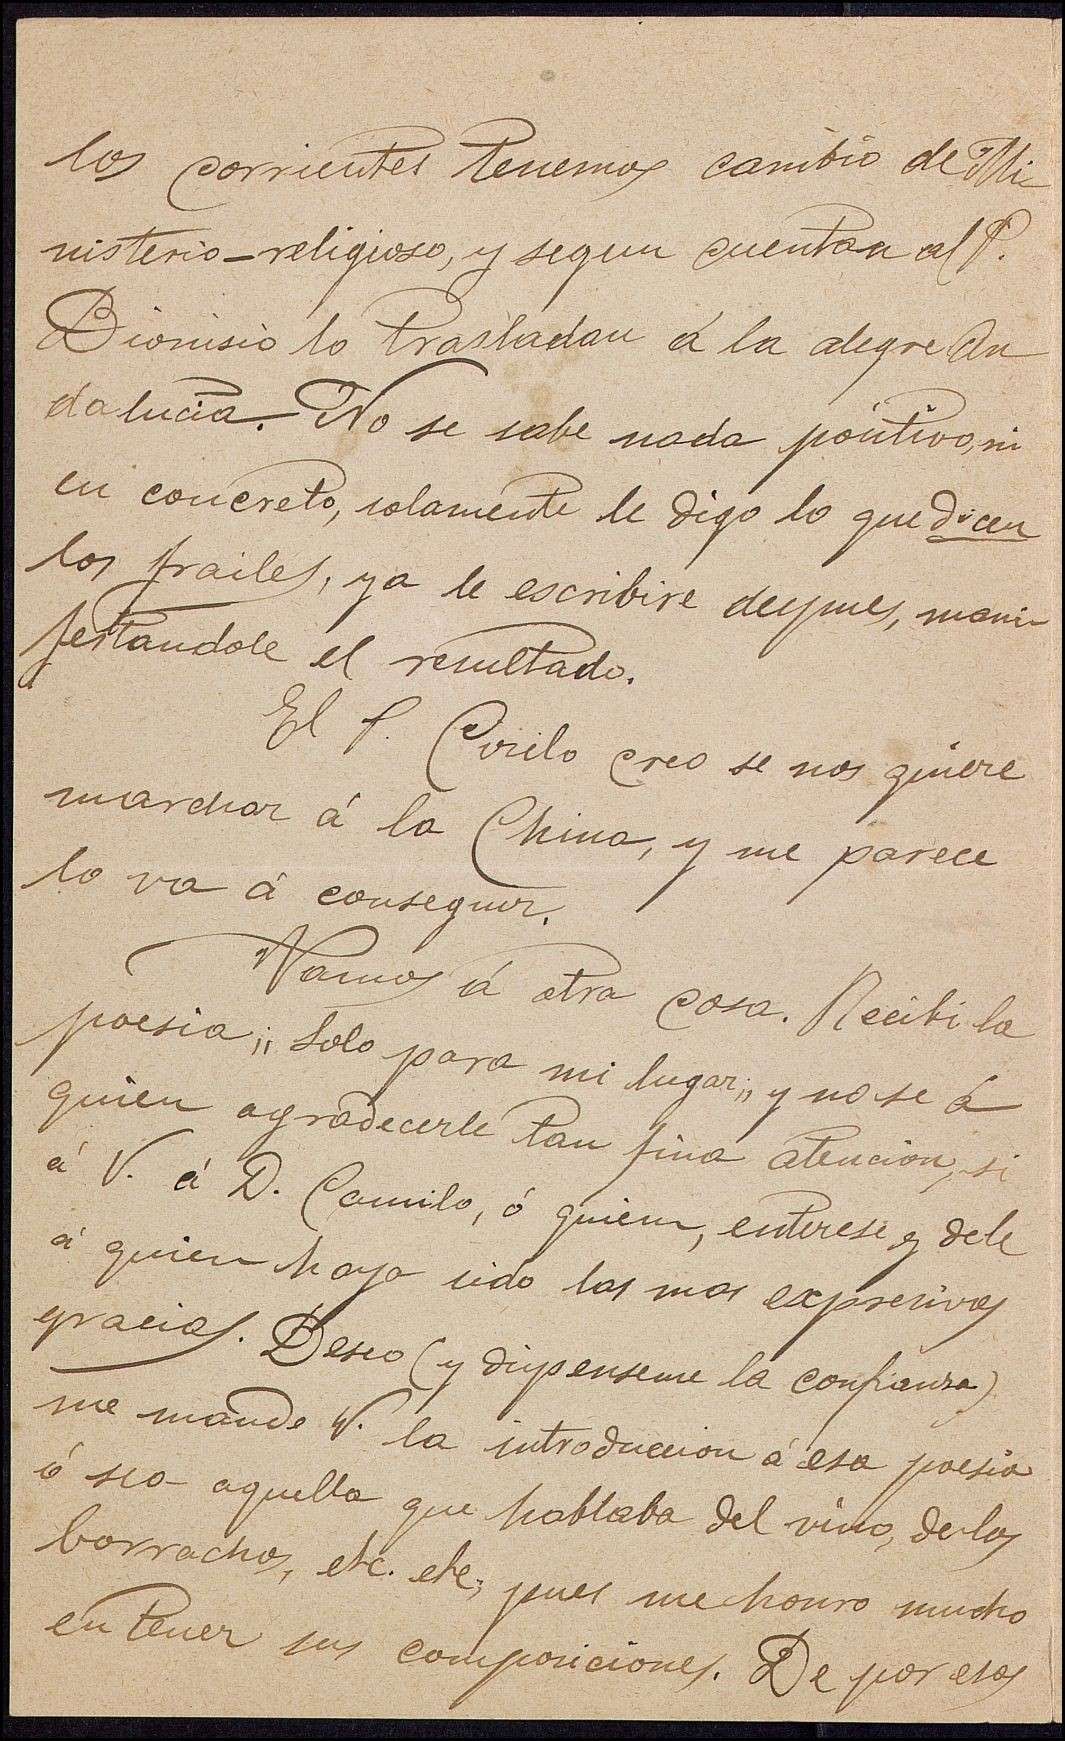 los corrientes tenemos cambio de Mi-
nisterio-religioso, y segun cuentan al P.
Dionisio lo trasladan á la alegre An
dalucia. No se sabe nada positivo, ni
en concreto, solamente le digo lo que dicen
los frailes, ya le escribire despues, mani-
festandole el resultado.
El P. Cirilo creo se nos quiere
marchar á la China, y me parece
lo va á conseguir.
Vamos á otra cosa. Recibi la
poesia „ Solo para mi lugar „ y no se á
quien agradecerle tan fina atencion, si
á V. á D. Camilo, ó quien, enterese y dele
á quien haya sido las mas expresivas
gracias. Deseo (y dispenseme la confianza)
me mande V. la introduccion á esa poesia
ó sea aquella que hablaba del vino, de los
borrachos, etc. etc, pues me honro mucho
en tener sus composiciones. De por esos